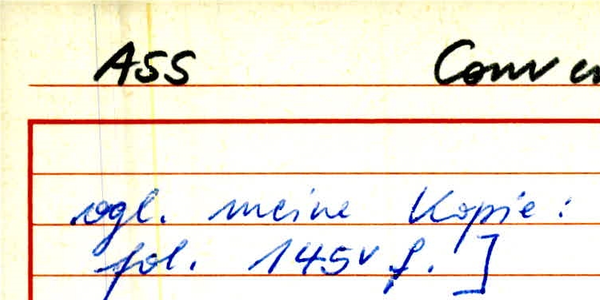 ASS
vgl. meine Kopie:
fol. 145v f.]